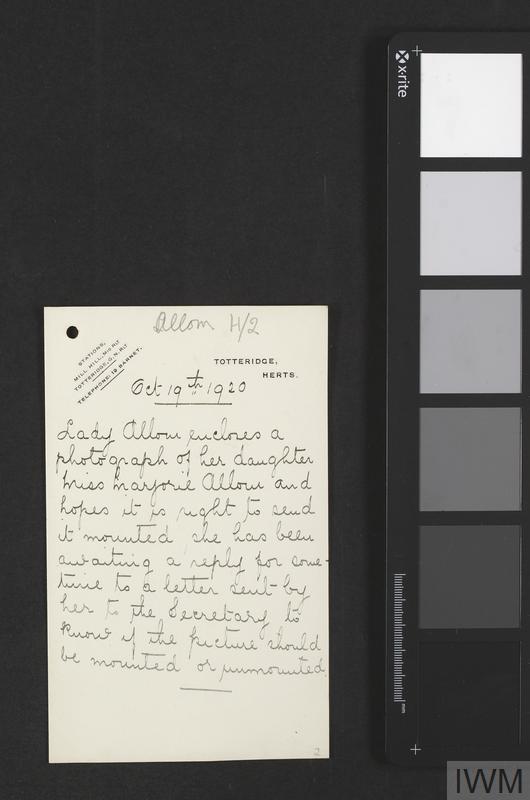 Allom H/2
STATIONS,
MILL HILL, MID. RLY
TOTTERIDGE, G.N. RLY
TELEPHONE: 19 BARNET.
TOTTERIDGE,
HERTS.
Oct 19th 1920
Lady Allom encloses a
photograph of her daughter
Miss Marjorie Allom and
hopes it is right to send
it mounted, she has been
awaiting a reply for some-
time to a letter sent by
her to the Secretary to
know if the picture should
be mounted or unmounted.
2
x-rite
mm
IWM